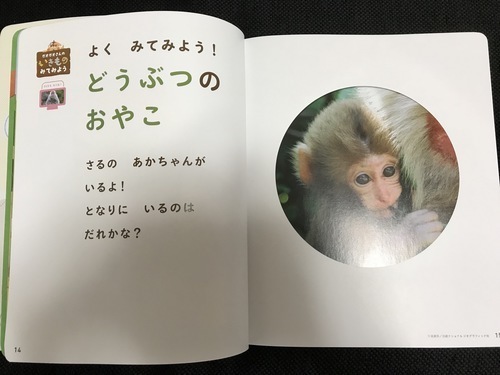 いきもの
みてみよう
よく みてみよう!
どうぶつの
おやこ
さるの あかちゃんが
いるよ!
となりに いるのは
だれかな?
14